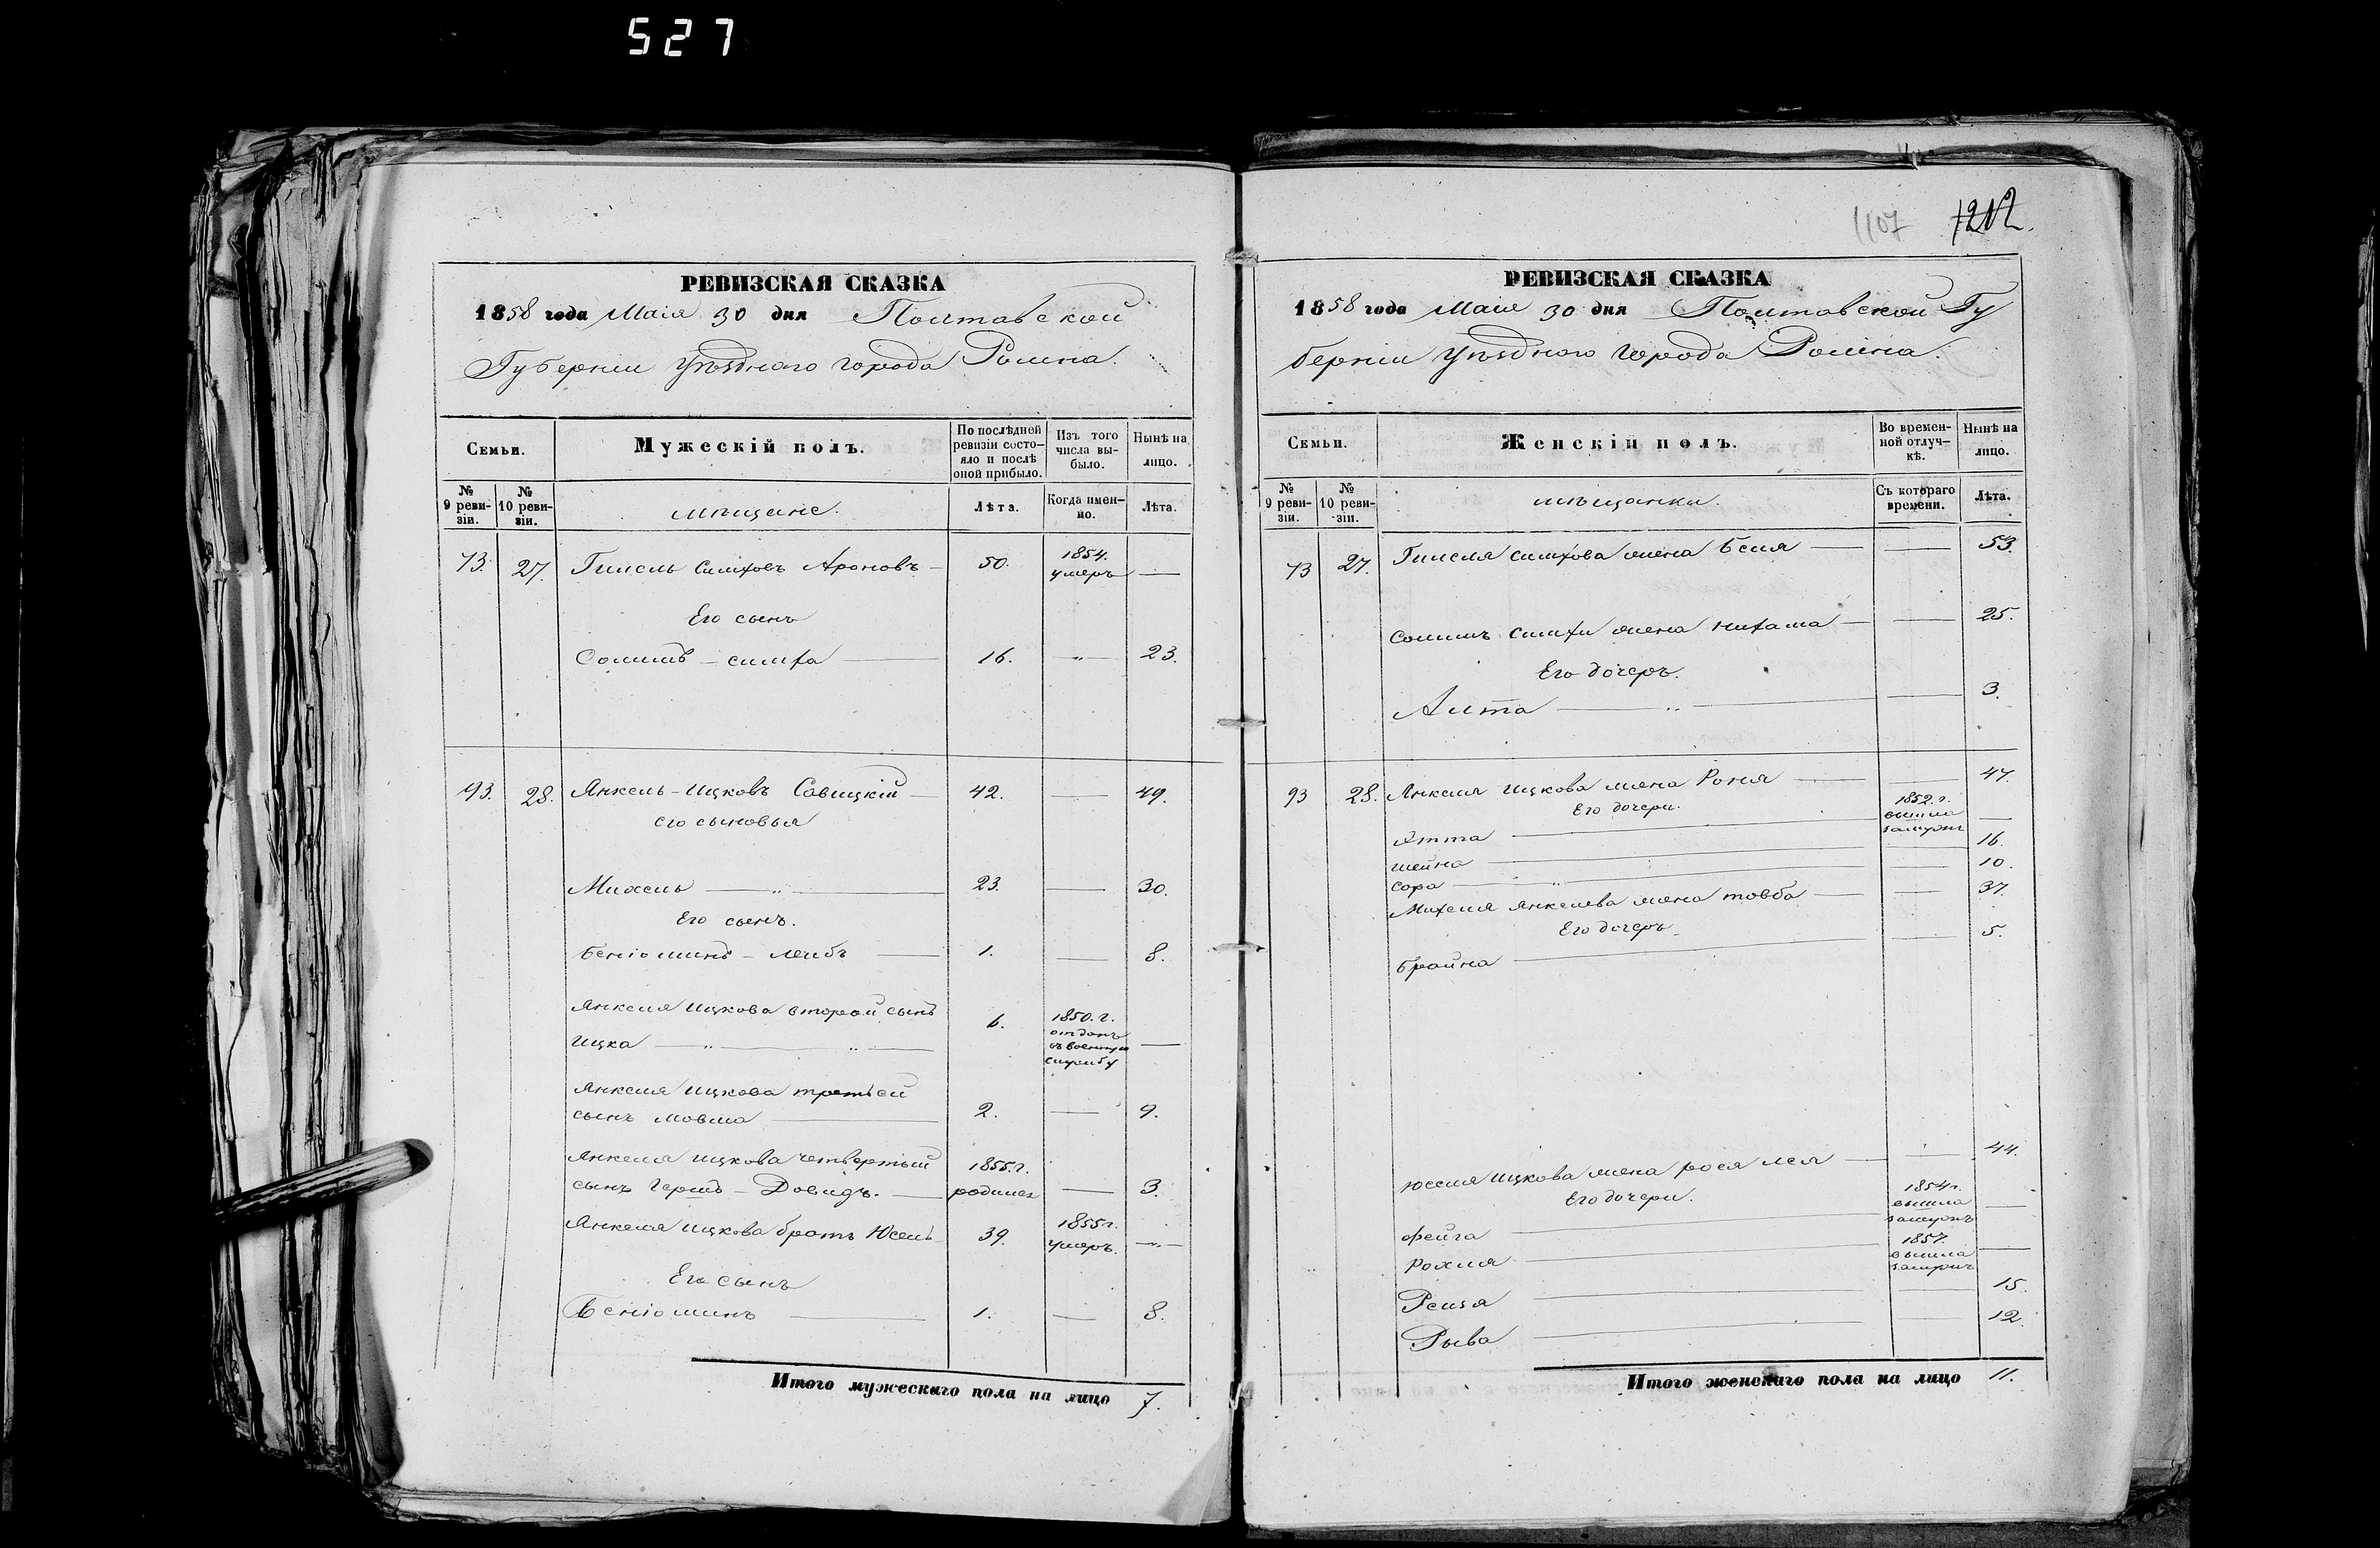 527
РЕВИЗСКАЯ СКАЗКА
1858 года Маія 30 дня Полтавской
Губерніи Уѣзднаго города Ромна.
Семьи.
Мужескій полъ.
По послѣдней ревизіи состо-
яло и послѣ
оной прибыло.
Изъ того
числа вы-
было.
Нынѣ на
лицо.
№ 9 реви-
зіи.
№ 10 реви-
зіи.
мѣщане.
Лѣта.
Когда имен-
но.
Лѣта.
73. 27. Гилель Симховъ Ароновъ 50. 1854. умеръ —
Его сынъ
Соломъ - симха 16. „ 23.
93. 28. Янкель - Ицковъ Савицкій 42. — 49.
его сыновья
Михель — „ — 23. — 30.
Его сынъ.
Беніоминъ - лейбъ — 1. — 8.
Янкеля Ицкова второй сынъ
Ицка — „ — „ — 6. 1850. г. отданъ въ военную службу —
Янкеля Ицкова третьей
сынъ мовша — 2. — 9.
Янкеля Ицкова четвертый
сынъ Гершъ - Довидъ. — 1855. г. родился — 3.
Янкеля Ицкова братъ Юсель 39. 1855 г. умеръ. —
Его сынъ
Беніоминъ — 1. — 8.
Итого мужескаго пола на лицо 7.
1107 1212.
РЕВИЗСКАЯ СКАЗКА
1858 года Маія 30 дня Полтавской Гу
берніи Уѣзднаго города Ромна.
Семьи.
Женскій полъ.
Во времен-
ной отлуч-
кѣ.
Нынѣ на
лицо.
№ 9 реви-
зіи.
№ 10 реви-
зіи.
мѣщанки.
Съ котораго
времени.
Лѣта.
73 27. Гилеля симхова жена Беля — — 53.
Соломъ симхи жена нихама — — 25.
Его дочеръ.
Алта — „ — — 3.
93 28. Янкеля Ицкова жена Роня — — 47.
Его дочери.
Ятта — 1852. г. вышла замужъ —
шейна — 16.
сора — „ — — 10.
Михеля янкелева жена товба — — 37.
Его дочеръ.
брайна — — 5.
Юселя Ицкова жена рося лея — — 44.
Его дочери.
фейга — 1854 г. вышла замужъ —
Рохля — 1857. вышла замужъ —
Рейзя — — 15.
Рыва — — 12.
Итого женскаго пола на лицо 11.